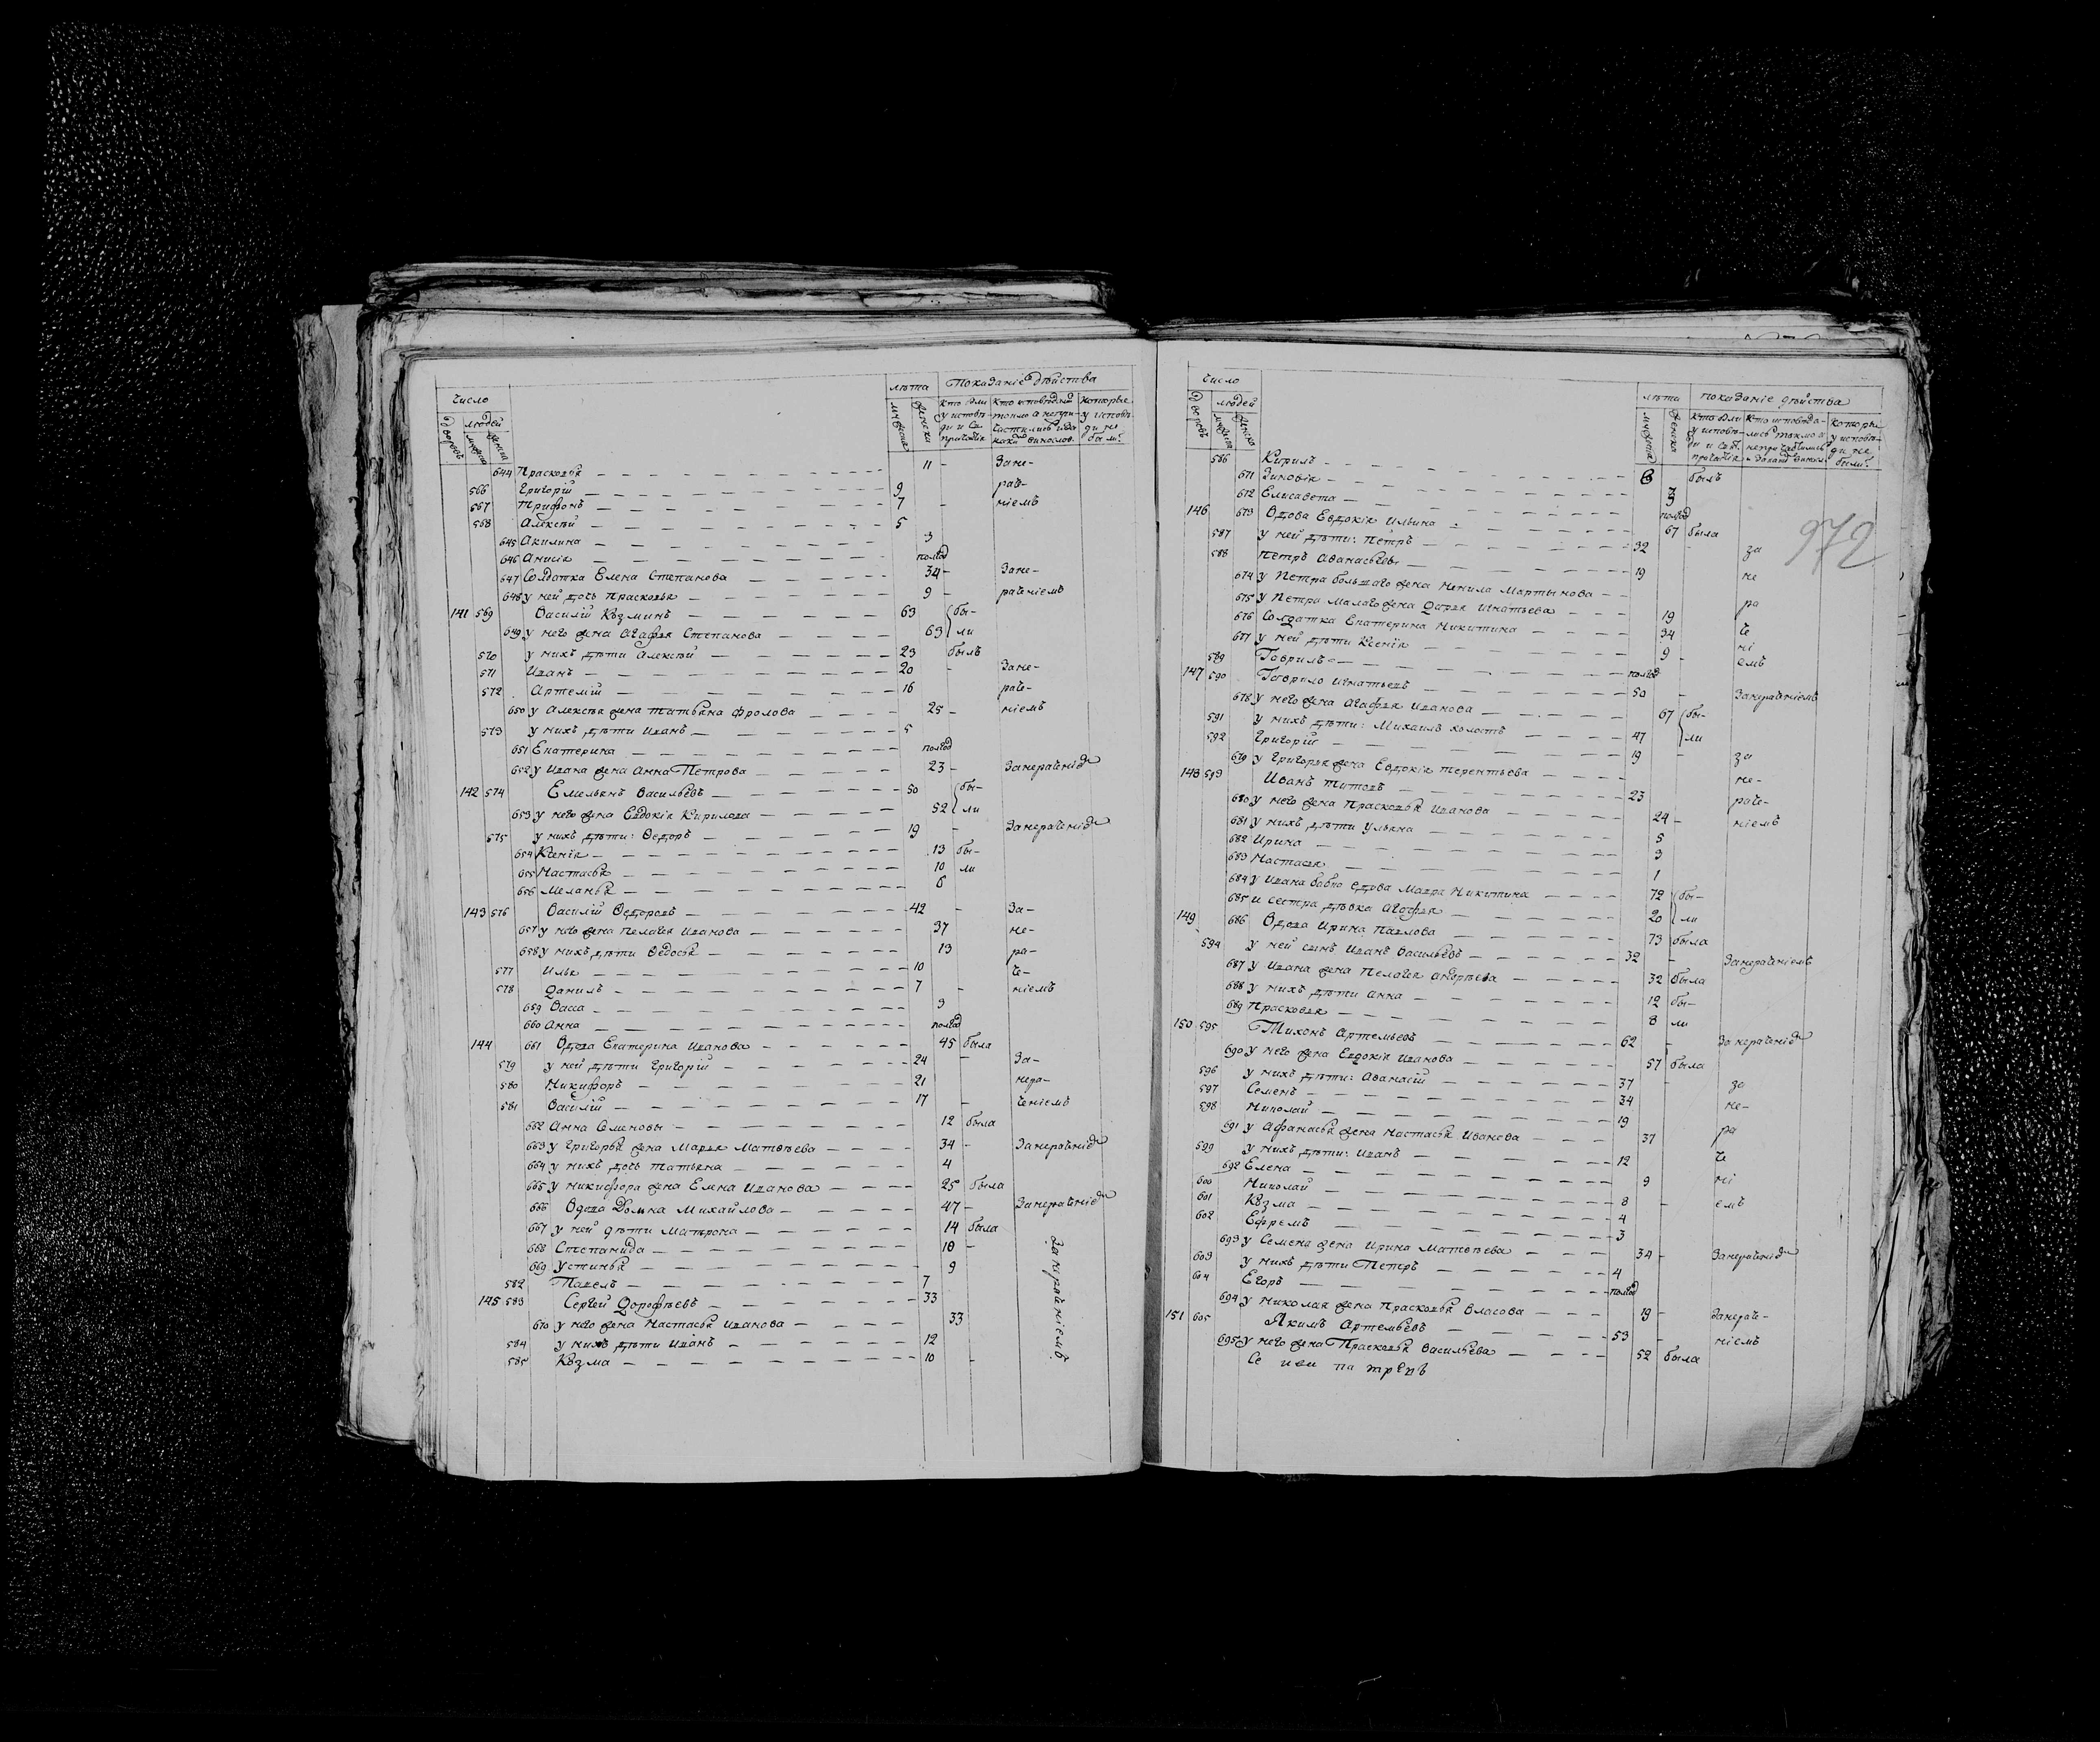 число лѣта Показаніе дѣйства
дворовъ людей мужеска женска мужеска женски
644 Прасковья 11 - Зане-
566 Григорій 9 - раче-
567 Трифонъ 7 - ніемъ
568 Алексѣй 5
645 Акилина 3
646 Анисія полгод
647 Солдатка Елена Степанова 34 - Зане-
648 у ней дочь Прасковья 9 - раченіемъ
141 569 Василій Козминъ 63 бы-
649 у него жена Агафья Степанова 63 ли
570 у нихъ дѣти Алексѣй 23 былъ
571 Иванъ 20 - Зане-
572 Артемій 16 раче-
650 у Алексѣя жена татьяна фролова 25 - ніемъ
573 у нихъ дѣти Иванъ 5
651 Екатерина полгод
652 у Ивана жена Анна Петрова 23 - Занераченіе
142 574 Емельянъ Васильевъ 50 бы-
653 у него жена Евдокія Кирилова 52 ли
575 у нихъ дѣти: Ѳедоръ 19 - Занераченіе
654 Ксенія 13 бы-
655 Настасья 10 ли
656 Меланья 6
143 576 Василій Ѳедоровъ 42 - За-
657 у него жена Пелагея Иванова 37 не-
658 у нихъ дѣти Ѳедосья 13 ра-
577 Илья 10 че-
578 Данилъ 7 - ніемъ
659 Васса 3
660 Анна полгод
144 661 Вдова Екатерина Иванова 45 была
579 у ней дѣти Григорій 24 - За-
580 Никифоръ 21 нера-
581 Василій 17 - ченіемъ
662 Анна Семеновы 12 была
663 у Григорья жена Марья Матвѣева 34 - Занераченіе
664 у нихъ дочь татьяна 4
665 у никифора жена Елена Иванова 25 была
666 Вдова Домна Михайлова 47 - Занераченіе
667 у ней дѣти Матрона 14 была
668 Степанида 10 -
669 Устинья 9
582 Павелъ 7
145 583 Сергей Дорофѣевъ 33
670 у него жена Настасья Иванова 33
584 у нихъ дѣти Иванъ 12
585 Козма 10 -
Занераченіемъ
число лѣта показаніе дѣйства
дворовъ людей мужеска женска
586 Кирилъ 8 былъ
671 Зиновія
672 Елисавета полгод
146 673 Вдова Евдокія Ильина 67 была
587 у ней дѣти: Петръ 32 - за
588 Петръ Аѳанасьевы 19 не
674 у Петра большаго жена Ненила Мартынова
675 у Петра малаго жена Дарья Игнатьева 19 ра
676 Солдатка Екатерина Никитина 34 че
677 у ней дѣти Ксенія 9 - ні
589 Гаврилъ полгод емъ
147 590 Гаврило Игнатьевъ 50 - Занераченіемъ
678 у него жена Агафья Иванова 67 бы-
591 у нихъ дѣти: Михаилъ холостъ 47 ли
592 Григорій 19 - за
679 у Григорья жена Евдокія терентьева не-
148 593 Иванъ титовъ 23 раче-
680 у него жена Прасковья Иванова 24 - ніемъ
681 у нихъ дѣти Ульяна 5
682 Ирина 3
683 Настасья 1
684 у Ивана бабка вдова Мавра Никитина 72 бы-
685 и сестра дѣвка Агафья 20 ли
149 686 Вдова Ирина Павлова 73 была
594 у ней сынъ Иванъ Васильевъ 32 - Занераченіемъ
687 у Ивана жена Пелагея Андрѣева 32 была
688 у нихъ дѣти Анна 12 бы-
689 Прасковья 8 ли
150 595 Тихонъ Артемьевъ 62 - Занераченіе
690 у него жена Евдокія Иванова 57 была
596 у нихъ дѣти: Аѳанасій 37 за
597 Семенъ 34 не-
598 Николай 19
691 у Афанасья жена Настасья Иванова 37 ра
599 у нихъ дѣти: Иванъ 12 че
692 Елена 9 ні
600 Николай 8 - емъ
601 Козма 4
602 Ефремъ 3
693 у Семена жена Ирина Матвѣева 34 - Занераченіе
603 у нихъ дѣти Петръ 4
604 Егоръ полгод
694 у Николая жена Прасковья Власова 19 - Занераче-
151 605 Якимъ Артемьевъ 53 - ніемъ
695 у него жена Прасковья Васильева 52 была
972